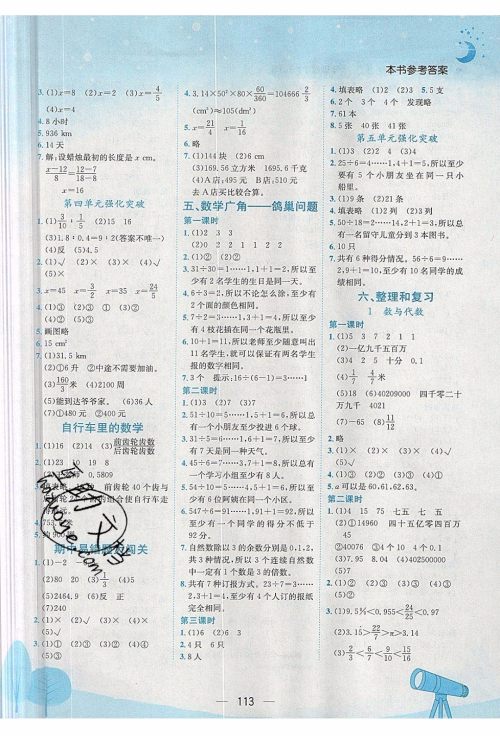 本书参考答案
3.(1)x=8 (2)x=2 (3)x=4/5
(4)x=4
4.8小时
5.936 km
6.14天
7.解:设蜡烛最初的长度是x cm。
x-12/8=x-18/6
x=16
第四单元强化突破
1.(1)3/10:1/5 (2)15 16
(3)1.8:0.4=9:2(答案不唯一)
(4)反 (5)4.5
2.(1)√ (2)× (3)× (4)√
(5)×
3.x=45 x=3/2 x=35 x=24/5
4.(1)③ (2)③ (3)① (4)②
5.画图略
6.15 cm²
7.(1)31.5 km
(2)①6升 ②中途不需要加油。
(3)160/3米 (4)2100周
(5)能到达爷爷家。 (6)36人
(7)①480元 ②400元
自行车里的数学
1.(1)16 (2)14 (3)前齿轮齿数/后齿轮齿数
2.(1)23 10 19 8
期中易错题过关
1.(1)-2
(2)80 20 (3)1/3 (4)5
(5)2464.9 (6)反 正
(7)240
2.(1)× (2)√ (3)× (4)×
(5)√
3.(1)① (2)③ (3)② (4)③
(5)③
4.3.14×50²×80×60/360=104666 2/3
(cm³)≈105(dm³)
5.x=21/4 x=1/4
6.略
7.(1)144块 (2)6 cm
(3)169.56立方米 1695.6千克
(4)A店:495元 B店:510元
去A店买比较合算。
五、数学广角——鸽巢问题
第一课时
1.(1)2 3 3
(2)0 2 2 1 1 2 2
2.(1)② (2)③
3.31÷30=1……1,1+1=2,所以至
少有2名学生的生日是同一天。
4.6÷3=2,所以不论怎么涂,至少有
2个面的颜色相同。
5.7÷2=3……1,3+1=4,所以至
少有4枝花插在同一个花瓶里。
6.10+1=11,所以老师至少随意叫出
11名学生,就可以保证有两名学生
报的数字相同。
7.3个 提示:16÷(6-1)=3……1
第二课时
1.(1)7 (2)3
2.51÷10=5……1,5+1=6,所以至
少有一个小朋友至少投进6个球。
3.31÷5=6……1,6+1=7,所以至少
有7天是同一种天气。
4.45÷6=7……3,7+1=8,所以总
有一个学习小组至少有8人。
5.56÷10=5……6,5+1=6,所以至
少有6位阿姨在同一个小区。
6.547÷6=91……1,91+1=92,所以
至少有一个同学的得分不低于
92分。
7.自然数除以3的余数分别是0,1,2,
共3种情况,所以3个连续自然数
中一定有1个数是3的倍数。
8.共有7种订报方式。23÷7=3……
2,3+1=4,所以至少有4人订的报纸
完全相同。
第三课时
1.(1)6 (2)6 3
2.4只 6只
3.8人
4.填表略 (1)2 (2)3 5.5支
6.2个 3个 4个 发现略
7.61本
8.5张 40张 41张
第五单元强化突破
1.(1)3 (2)2 4 (3)4
2.25÷6=4……1,4+1=5,所以至少
要有5个小朋友坐在同一只小
船里。
3.(1)9条 (2)21条
4.填表略 (1)2列 (2)3列
5.50-18÷2……14,2+1=3,所以总
有一名留守儿童分到3本图书。
6.10只
7.共有6种得分情况。56÷6=9……
2,9+1=10,至少有10名同学的成
绩相同。
六、整理和复习
1 数与代数
第一课时
1.(1)5 3 7 2 1 1
(2)一亿九千五百万
(3)4 2 5 十分 0.1
(4)1/7 4/7米
(5)18 (6)40209000 四千零二十
万九千 4021
(7)-65 (8)11/12
2.略
3.(1)× (2)× (3)√ (4)×
(5)√
4.(1)① (2)② (3)③ (4)①
5.a可以是60、61、62、63。
第二课时
1.(1)4 15 75 七五 七 五
(2)①14960 四十五亿零四百万
45
②40076 ③4个10 4个0.1
(3)7.95 8.04 (4)402500000
(5)17
2.(1)② (2)③ (3)③ (4)②
(5)③
3.(1)9.5%<0.955<24/25<0.97
(2)3.15>22/7>π>3.14
(3)2/3<6/7<9/10<15/16
113